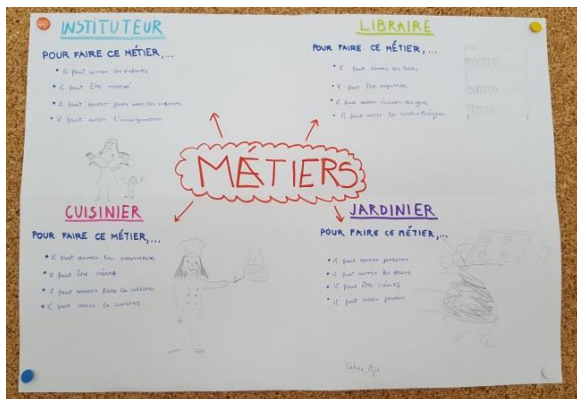 INSTITUTEUR
POUR FAIRE CE MÉTIER,...
• il faut aimer les enfants
• il faut être
• il faut savoir jouer avec les enfants
• il faut avoir l'imagination
LIBRAIRE
POUR FAIRE CE MÉTIER,...
• il faut aimer les livres
• il faut être
• il faut
• il faut avoir
MÉTIERS
CUISINIER
POUR FAIRE CE MÉTIER,...
• il faut aimer la nourriture
• il faut être créatif
• il faut savoir faire la cuisine
• il faut avoir la cuisine
JARDINIER
POUR FAIRE CE MÉTIER,...
• il faut savoir
• il faut aimer les fleurs
• il faut être créatif
• il faut avoir jardin